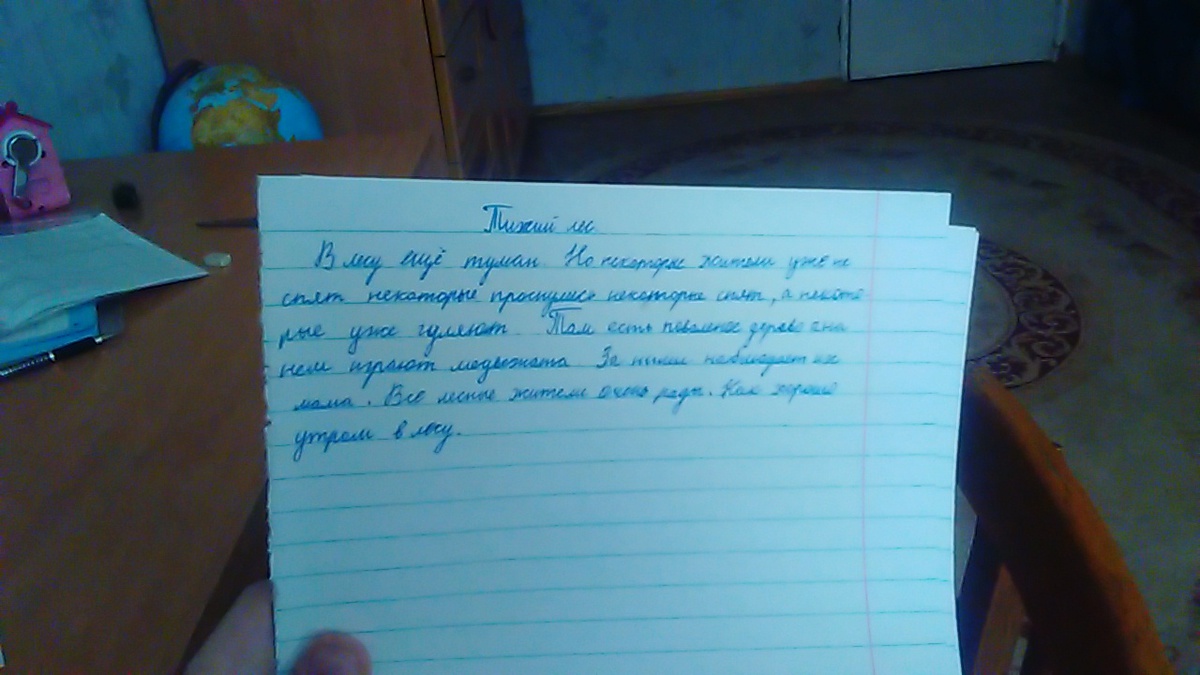 Тихий лес
В лесу ещё туман. Но некоторые жители уже не
спят некоторые проснулись некоторые спят, а некото
рые уже гуляют. Там есть поваленое дерево а на
нем играют медвежата. За ними наблюдает их
мама. Все лесные жители очень рады. Как хорошо
утром в лесу.